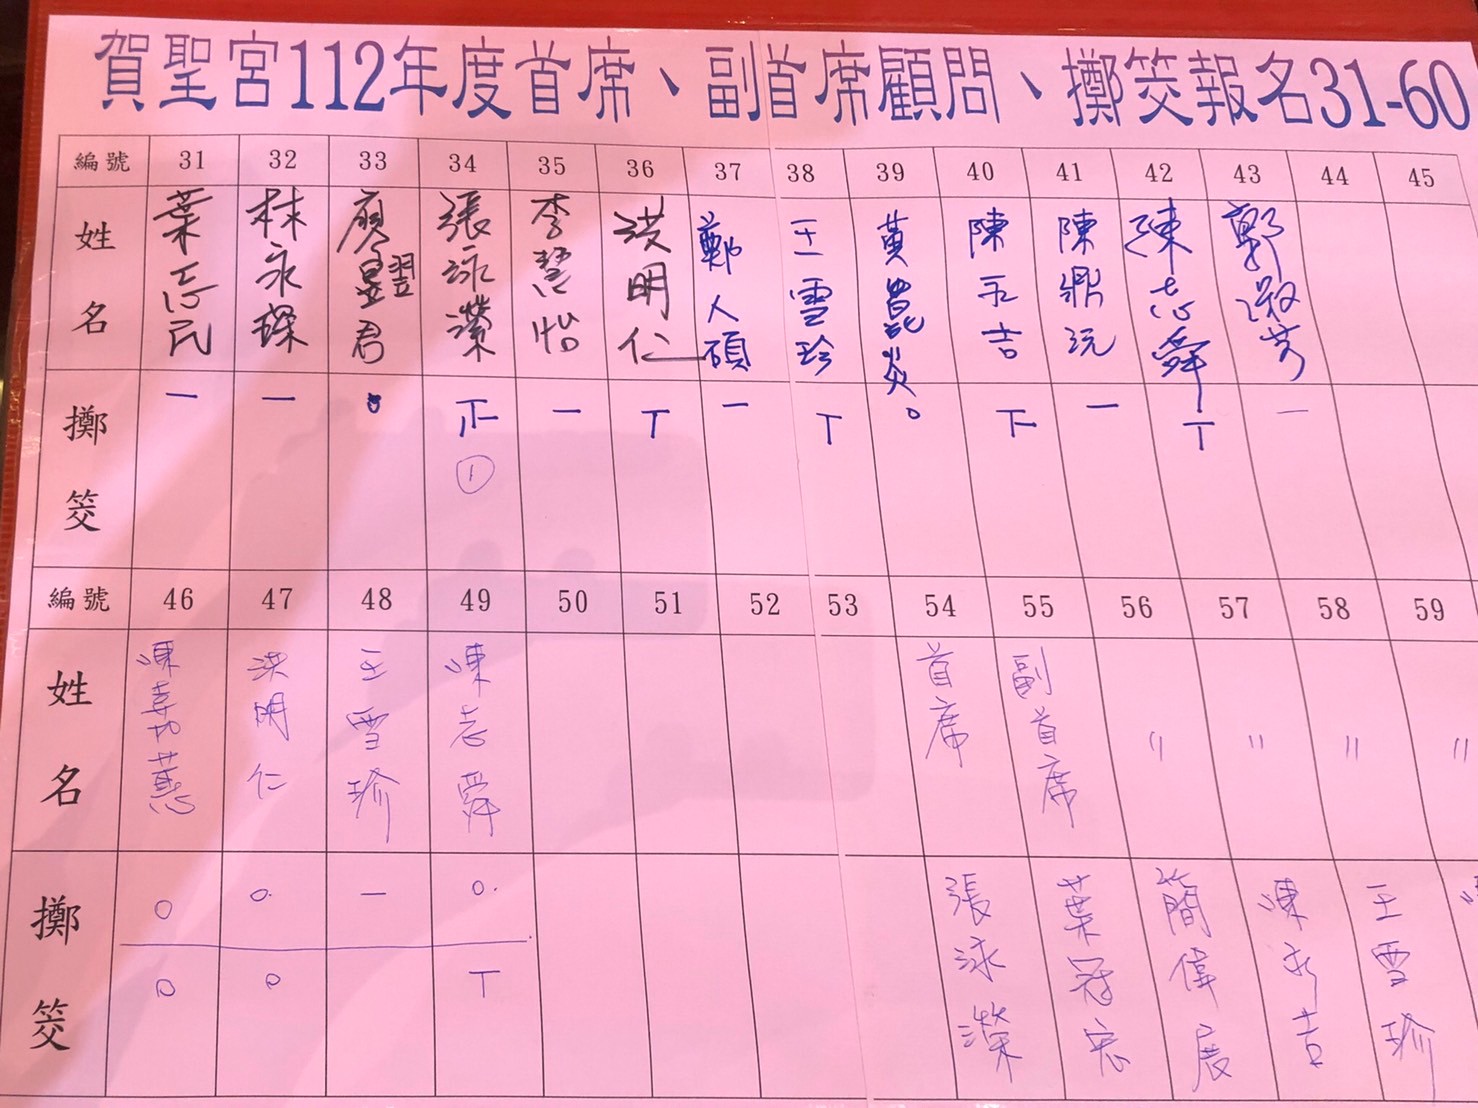 賀聖宮112年度首席、副首席顧問、擲筊報名31-60
編號 31 32 33 34 35 36 37 38 39 40 41 42 43 44 45
姓名 葉志民 林永琛 廖翌君 張詠瀠 李慧怡 洪明仁 鄭人碩 王雪珍 黃昆炎 陳永吉 陳鼎沅 陳志舜 郭淑芳
擲筊 一 一 正 ① 一 丅 一 丅 。 下 一 丅 一
編號 46 47 48 49 50 51 52 53 54 55 56 57 58 59
姓名 洪明仁 王雪珍 陳志舜 首席 副首席 〃 〃 〃 〃
擲筊 0 0. 一 0. 張詠瀠 葉冠宏 簡偉展 陳永吉 王雪珍
0 0 丅